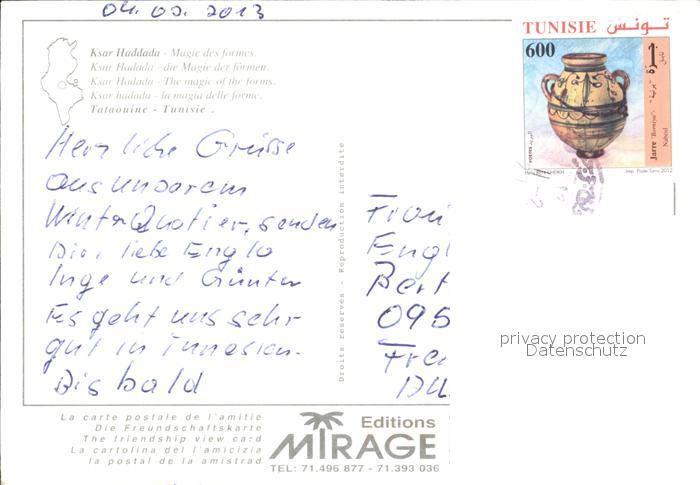 04.02.2013
Ksar Haddada - Magie des formes.
Ksar Hadada - die Magie der förmen.
Ksar Hadada - The magic of the forms.
Ksar hadada - la magia delle forme.
Tataouine - Tunisie .
Herzliche Grüsse
aus unserem
WinterQuatier, senden
Dir, liebe Engla
Inge und Günter
Es geht uns sehr
gut in Tunesien.
Bis bald
Droits réservés - Reproduction interdite
Frau
Engl
Bert
095
Fre
TUNISIE تونس
600
جرة
"برنية"
نابل
Jarre "Berniya"-
Nabeul
POSTES البريد
Imp. Poste Tunis 2012
privacy protection
Datenschutz
La carte postale de l'amitié
Die Freundschaftskarte
The friendship view card
La cartolina del l'amicizia
la postal de la amistrad
Editions
MIRAGE
TEL: 71.496 877 - 71.393 036